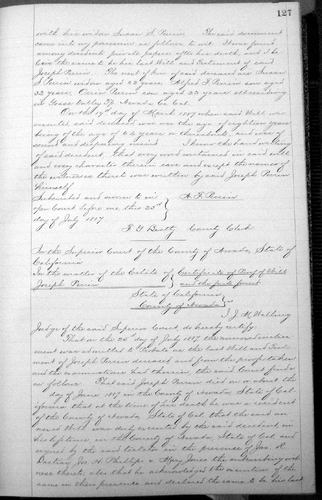 127
with his widow Susan S. Perrin. The said document
came into my possession as follows to wit: Same found
among decedent private papers after his death and I be
lieve the same to be his last Will and Testament of said
Joseph Perrin. The next of kin of said deceased are Susan
S. Perrin widow aged 52 years. Alfred F. Perrin son aged
32 years. Orrin Perrin son aged 23 years all residing
in Grass Valley Tp. Nevada Co. Cal.
On the 19th day of March 1887 when said Will was
executed said decedent was over the age of eighteen years
being of the age of 62 years or thereabouts and was of
sound and disposing mind. I know the hand writing
of said decedent that every word contained in said will
and every character therein save and except the names of
the witnesses thereto was written by said Joseph Perrin
himself.
Subscribed and sworn to in
open Court before me this 25th
day of July 1887
A. F. Perrin
F. G. Beatty County Clerk
In the Superior Court of the County of Nevada, State of
California
In the matter of the Estate of
Joseph Perrin
Certificate of Proof of Will
and the facts found
State of California
County of Nevada
I, J. M. Walling
Judge of the said Superior Court, do hereby certify:
That on the 25 day of July 1887, the annexed instru
ment was admitted to Probate as the last Will and Testa
ment of Joseph Perrin deceased and from the proofs taken
and the examination had therein the said Court finds
as follows: That said Joseph Perrin died on or about the
day of June 1887 in the County of Nevada, State of Cal
ifornia that at the time of his death he was a resident
of the County of Nevada State of Cal. that the said an
nexed Will was duly executed by the said decedent in
his lifetime in the County of Nevada State of Cal. and
signed by the said testator in the presence of Jas. R.
Jas. H. Phillips & Jones the subscribing wit
nesses thereto; also that he acknowledged the execution of the
same in their presence and declared the same to be his last